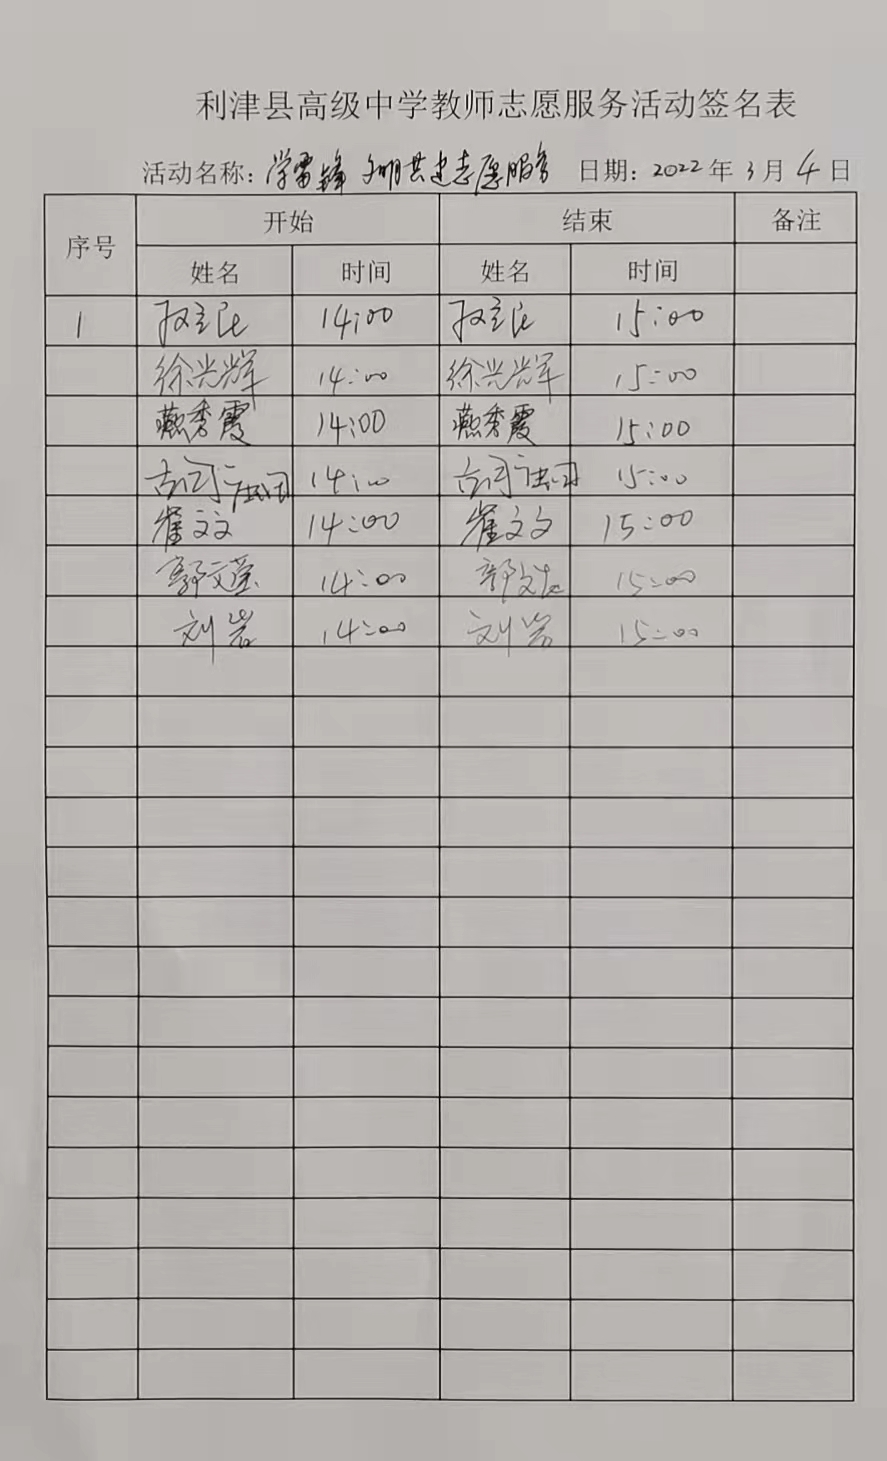 利津县高级中学教师志愿服务活动签名表
活动名称：学雷锋 文明共建志愿服务 日期：2022年3月4日
序号 开始 结束 备注
姓名 时间 姓名 时间
1 14:00 15:00
徐兴辉 14:00 徐兴辉 15:00
燕秀霞 14:00 燕秀霞 15:00
14:00 15:00
崔文文 14:00 崔文文 15:00
14:00 15:00
刘岩 14:00 刘岩 15:00